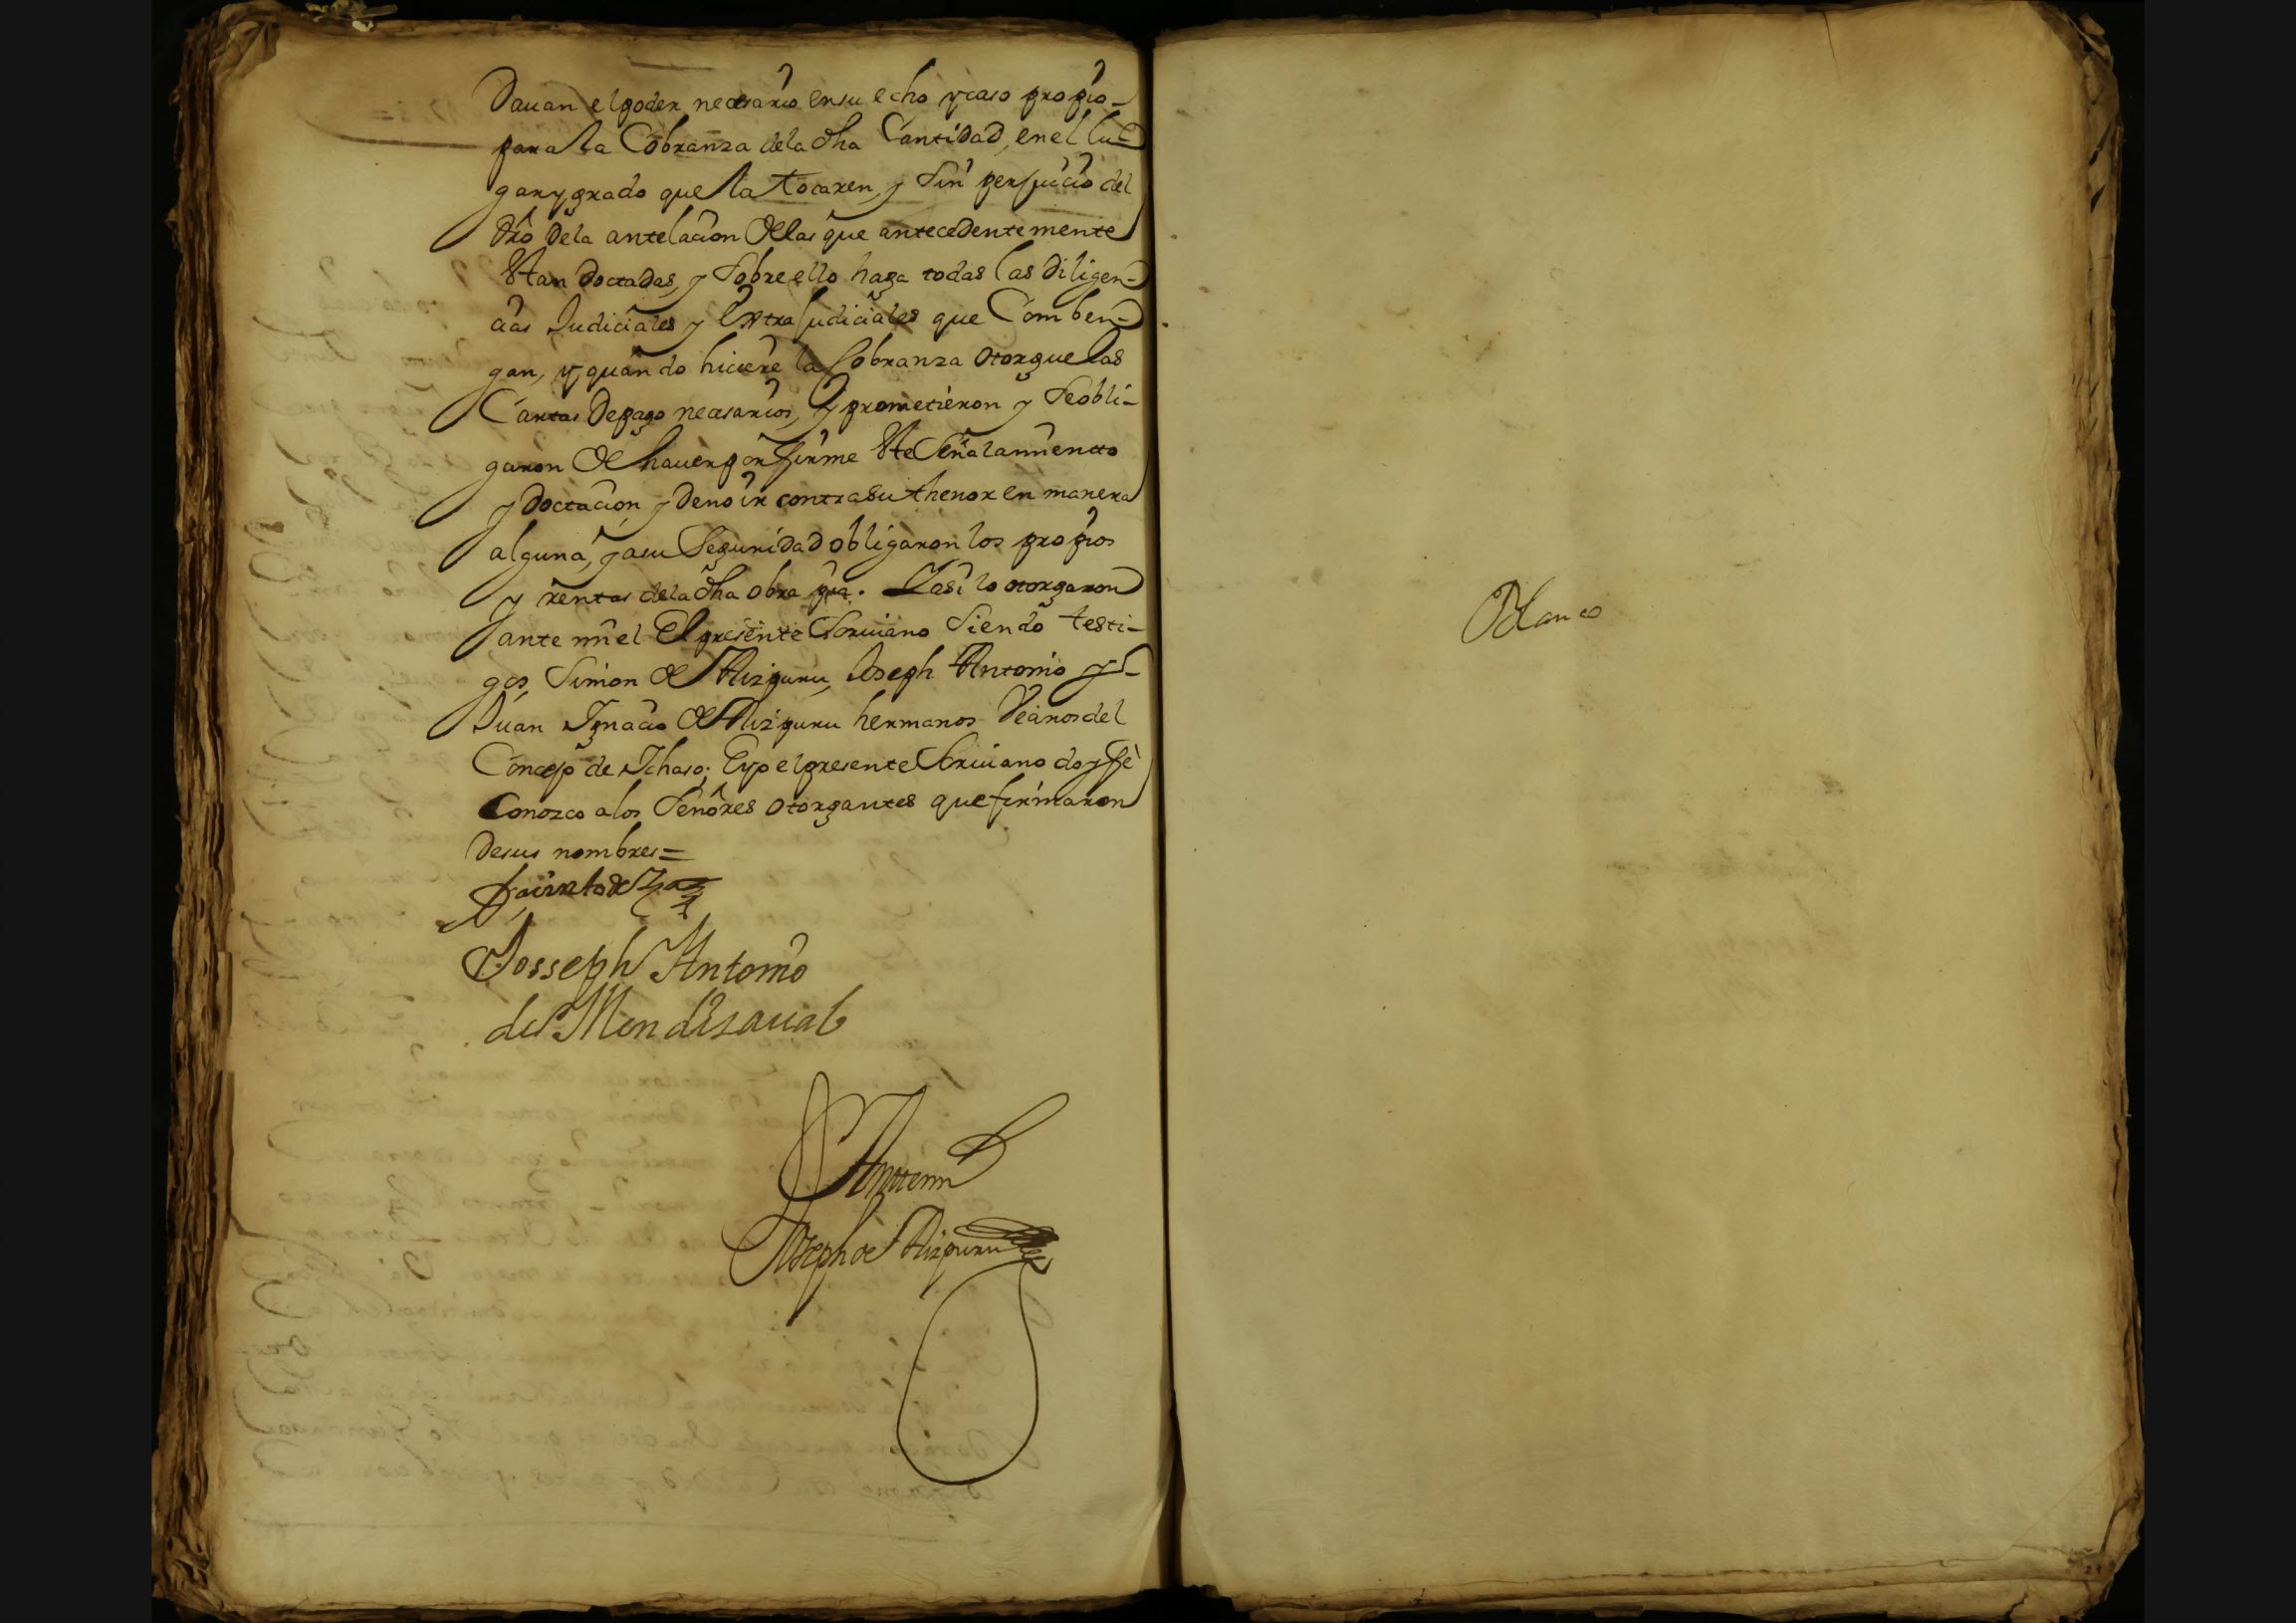 Dauan el poder necesario en su echo y caso propio-
para la Cobranza de la dha Cantidad, en el lu-
gar y grado que la tocaren, y sin perjuicio del
dro de la antelacion de las que antecedentemente
estan doctadas, y sobre ello haga todas las diligen-
cias Judiciales y extrajudiciales que Comben-
gan, y quando hiciere la Cobranza otorgue las
Cartas de pago necesarios, y prometieron y se obli-
garon de hauer por firme este señalamiento
y doctacion y de no ir contra su thenor en manera
alguna, y a su seguridad obligaron los propios
y rentas de la dha obra pia. Y asi lo otorgaron
ante mi el El presente Scriuano siendo testi-
gos, Simon de Aizpuru, Joseph Antonio y
Juan Ignacio de Aizpuru hermanos vecinos del
Concejo de Ichaso; Eyo el presente Scriuano doy fè
Conozco a los señores otorgantes que firmaron
de sus nombres=
Jacinto de
Josseph Antonio
de Mendizaual
Antemi
Joseph de Aizpuru
Blanco